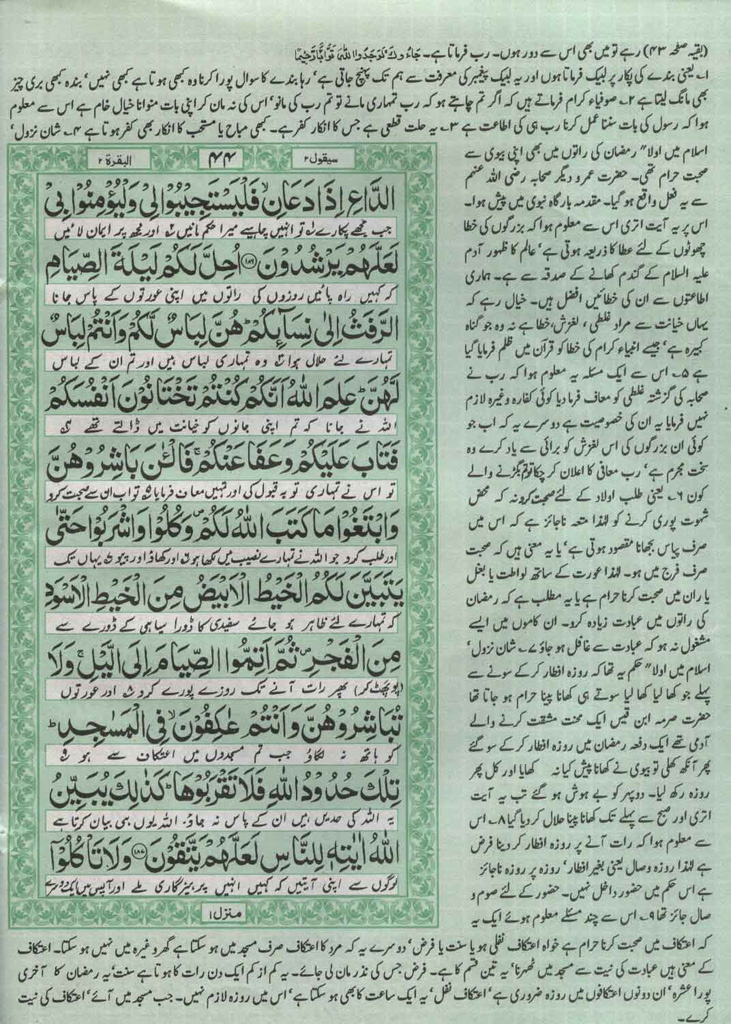 (بقیہ صفحہ ۴۳) رہے تو میں بھی اس سے دور ہوں۔ رب فرماتا ہے۔ جَآءُوۡكَ لَوَجَدُوا اللّٰهَ تَوَّابًا رَّحِيۡمًا
۱۔ یعنی بندے کی پکار پر لبیک فرماتا ہوں اور یہ لبیک پیغمبر کی معرفت سے ہم تک پہنچ جاتی ہے، رہا بندے کا سوال پورا کرنا وہ کبھی ہوتا ہے کبھی نہیں، بندہ کبھی بری چیز
بھی مانگ لیتا ہے ۲۔ صوفیاء کرام فرماتے ہیں کہ اگر تم چاہتے ہو کہ رب تمہاری مانے تو تم رب کی مانو، اس کی نہ مان کر اپنی بات منوانا خیال خام ہے اس سے معلوم
ہوا کہ رسول کی بات سننا عمل کرنا رب ہی کی اطاعت ہے ۳۔ یہ حلت قطعی ہے جس کا انکار کفر ہے۔ کبھی مباح یا مستحب کا انکار بھی کفر ہوتا ہے ۴۔ شان نزول'
سیقول ۲
۴۴
البقرة ۲
الدَّاعِ اِذَا دَعَانِ فَلۡيَسۡتَجِيۡبُوۡا لِىۡ وَلۡيُؤۡمِنُوۡا بِىۡ
جب مجھے پکارے تو انہیں چاہیے میرا حکم مانیں اور مجھ پر ایمان لائیں
لَعَلَّهُمۡ يَرۡشُدُوۡنَ ۱۸۶ اُحِلَّ لَـکُمۡ لَيۡلَةَ الصِّيَامِ
کہ کہیں راہ پائیں روزوں کی راتوں میں اپنی عورتوں کے پاس جانا
الرَّفَثُ اِلٰى نِسَآئِكُمۡ هُنَّ لِبَاسٌ لَّـكُمۡ وَاَنۡـتُمۡ لِبَاسٌ
تمہارے لئے حلال ہوا وہ تمہاری لباس ہیں اور تم ان کے لباس
لَّهُنَّ عَلِمَ اللّٰهُ اَنَّکُمۡ كُنۡتُمۡ تَخۡتَانُوۡنَ اَنۡفُسَکُمۡ
اللہ نے جانا کہ تم اپنی جانوں کو خیانت میں ڈالتے تھے
فَتَابَ عَلَيۡكُمۡ وَعَفَا عَنۡكُمۡ فَالۡـئٰنَ بَاشِرُوۡهُنَّ
تو اس نے تمہاری توبہ قبول کی اور تمہیں معاف فرمایا تو اب ان سے صحبت کرو
وَابۡتَغُوۡا مَا کَتَبَ اللّٰهُ لَـكُمۡ وَكُلُوۡا وَاشۡرَبُوۡا حَتّٰى
اور طلب کرو جو اللہ نے تمہارے نصیب میں لکھا ہو اور کھاؤ اور پیو یہاں تک
يَتَبَيَّنَ لَـكُمُ الۡخَـيۡطُ الۡاَبۡيَضُ مِنَ الۡخَـيۡطِ الۡاَسۡوَدِ
کہ تمہارے لئے ظاہر ہو جائے سفیدی کا ڈورا سیاہی کے ڈورے سے
مِنَ الۡفَجۡرِ ثُمَّ اَتِمُّوا الصِّيَامَ اِلَى الَّيۡلِ وَلَا
(پو پھٹ کر) پھر رات آنے تک روزے پورے کرو اور عورتوں
تُبَاشِرُوۡهُنَّ وَاَنۡـتُمۡ عٰكِفُوۡنَ فِى الۡمَسٰجِدِ
کو ہاتھ نہ لگاؤ جب تم مسجدوں میں اعتکاف سے ہو
تِلۡكَ حُدُوۡدُ اللّٰهِ فَلَا تَقۡرَبُوۡهَا كَذٰلِكَ يُبَيِّنُ
یہ اللہ کی حدیں ہیں ان کے پاس نہ جاؤ، اللہ یوں ہی بیان کرتا ہے
اللّٰهُ اٰيٰتِهٖ لِلنَّاسِ لَعَلَّهُمۡ يَتَّقُوۡنَ ۱۸۷ وَلَا تَاۡكُلُوۡٓا
لوگوں سے اپنی آیتیں کہ کہیں انہیں پرہیزگاری ملے اور آپس میں ایک دوسرے
منزل ۱
اسلام میں اولاً رمضان کی راتوں میں بھی اپنی بیوی سے
صحبت حرام تھی۔ حضرت عمرو دیگر صحابہ رضی اللہ عنہم
سے یہ فعل واقع ہو گیا۔ مقدمہ بارگاہ نبوی میں پیش ہوا۔
اس پر یہ آیت اتری اس سے معلوم ہوا کہ بزرگوں کی خطا
چھوٹوں کے لئے عطا کا ذریعہ ہوتی ہے، عالم کا ظہور آدم
علیہ السلام کے گندم کھانے کے صدقہ سے ہے۔ ہماری
اطاعتوں سے ان کی خطائیں افضل ہیں۔ خیال رہے کہ
یہاں خیانت سے مراد غلطی، لغزش، خطا ہے نہ وہ جو گناہ
کبیرہ ہے، جیسے انبیاء کرام کی خطا کو قرآن میں ظلم فرمایا گیا
ہے ۵۔ اس سے ایک مسئلہ یہ معلوم ہوا کہ رب نے
صحابہ کی گزشتہ غلطی کو معاف فرما دیا کوئی کفارہ وغیرہ لازم
نہیں فرمایا یہ ان کی خصوصیت ہے دوسرے یہ کہ اب جو
کوئی ان بزرگوں کی اس لغزش کو برائی سے یاد کرے وہ
سخت مجرم ہے، رب معافی کا اعلان کر چکا تو تم بگڑنے والے
کون ۶۔ یعنی طلب اولاد کے لئے صحبت کرو نہ کہ محض
شہوت پوری کرنے کو لہذا متعہ ناجائز ہے کہ اس میں
صرف پیاس بجھانا مقصود ہوتی ہے، یا یہ معنی ہیں کہ صحبت
صرف فرج میں ہو۔ لہذا عورت کے ساتھ لواطت یا بغل
یا ران میں صحبت کرنا حرام ہے یا یہ مطلب ہے کہ رمضان
کی راتوں میں عبادت زیادہ کرو۔ ان کاموں میں ایسے
مشغول نہ ہو کہ عبادت سے غافل ہو جاؤ ۷۔ شان نزول،
اسلام میں اولاً حکم یہ تھا کہ روزہ افطار کر کے سونے سے
پہلے جو کھا لیا کھا لیا سوتے ہی کھانا پینا حرام ہو جاتا تھا
حضرت صرمہ ابن قیس ایک محنت مشقت کرنے والے
آدمی تھے ایک دفعہ رمضان میں روزہ افطار کر کے سو گئے
پھر آنکھ کھلی تو بیوی نے کھانا پیش کیا نہ کھایا اور کل پھر
روزہ رکھ لیا۔ دوپہر کو بے ہوش ہو گئے تب یہ آیت
اتری اور صبح سے پہلے تک کھانا پینا حلال کر دیا گیا ۸۔ اس
سے معلوم ہوا کہ رات آنے پر روزہ افطار کر دینا فرض
ہے لہذا روزہ وصال یعنی بغیر افطار، روزہ پر روزہ ناجائز
ہے اس حکم میں حضور داخل نہیں۔ حضور کے لئے صوم و
صال جائز تھا ۹۔ اس سے چند مسئلے معلوم ہوئے ایک یہ
کہ اعتکاف میں صحبت کرنا حرام ہے خواہ اعتکاف نفلی ہو یا سنت یا فرض، دوسرے یہ کہ مرد کا اعتکاف صرف مسجد میں ہو سکتا ہے گھر وغیرہ میں نہیں ہو سکتا۔ اعتکاف
کے معنی ہیں عبادت کی نیت سے مسجد میں ٹھہرنا، یہ تین قسم کا ہے۔ فرض جس کی نذر مان لی جائے۔ یہ کم از کم ایک دن رات کا ہوتا ہے سنت، یہ رمضان کا آخری
پورا عشرہ، ان دونوں اعتکافوں میں روزہ ضروری ہے، اعتکاف نفل، یہ ایک ساعت کا بھی ہو سکتا ہے، اس میں روزہ لازم نہیں۔ جب مسجد میں آئے، اعتکاف کی نیت
کرے۔